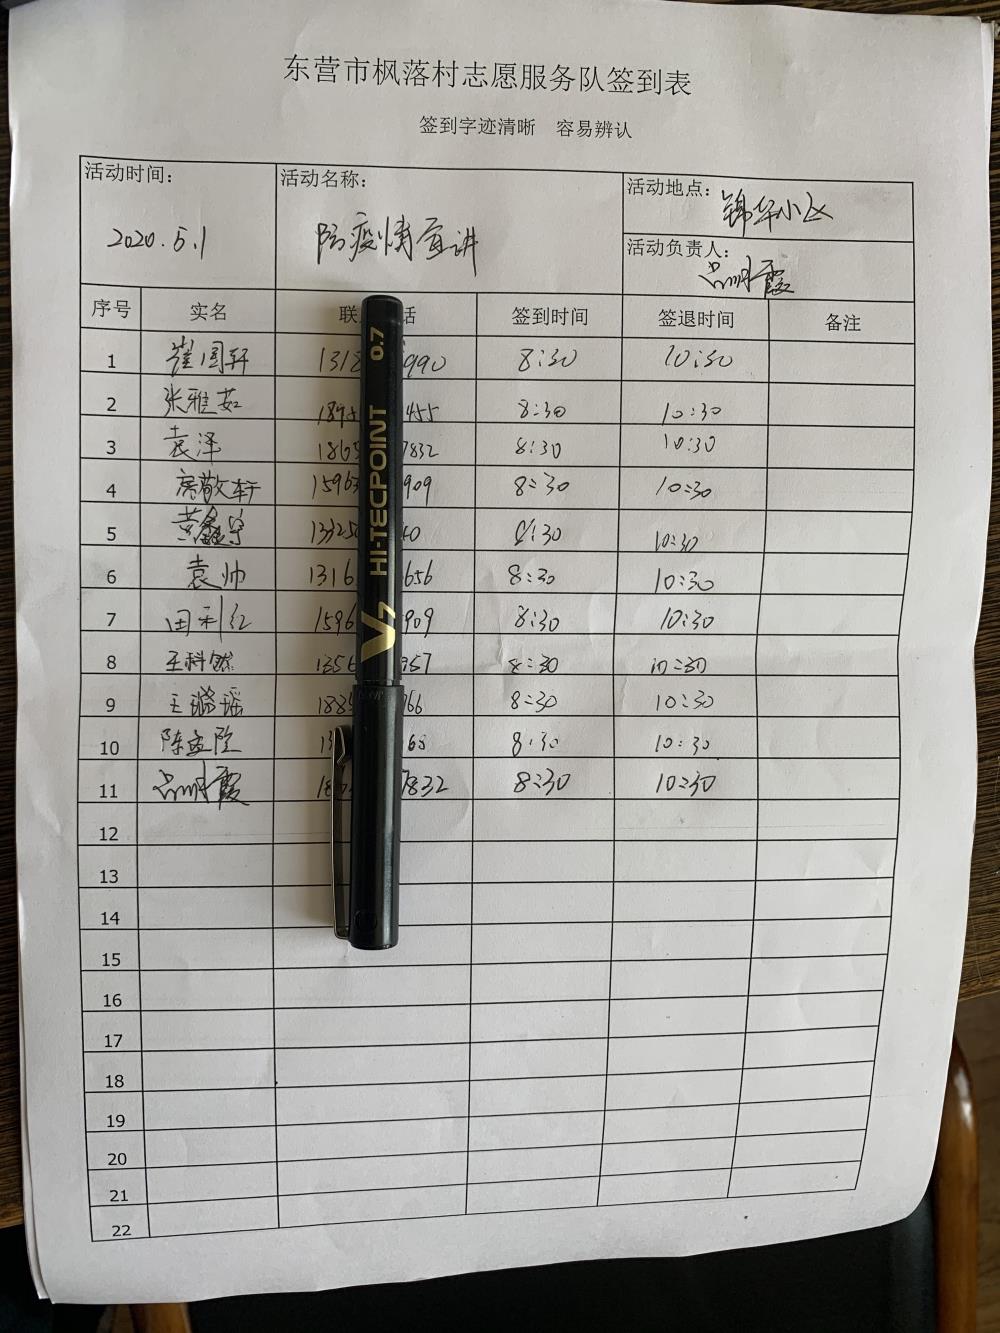 东营市枫落村志愿服务队签到表
签到字迹清晰 容易辨认
活动时间: 活动名称: 活动地点: 锦华小区
2020.5.1 防疫情宣讲 活动负责人:
序号 实名 联 话 签到时间 签退时间 备注
1 崔国轩 1318 990 8:30 10:30
2 张雅茹 1895 455 8:30 10:30
3 袁泽 1865 7832 8:30 10:30
4 房敬轩 15963 909 8:30 10:30
5 黄鑫宇 13325 40 8:30 10:30
6 袁帅 1316 656 8:30 10:30
7 田利红 1596 909 8:30 10:30
8 王科然 1356 957 8:30 10:30
9 王璐瑶 188 766 8:30 10:30
10 陈孟 13 68 8:30 10:30
11 18 7832 8:30 10:30
12
13
14
15
16
17
18
19
20
21
22
HI-TECPOINT 0.7
V7